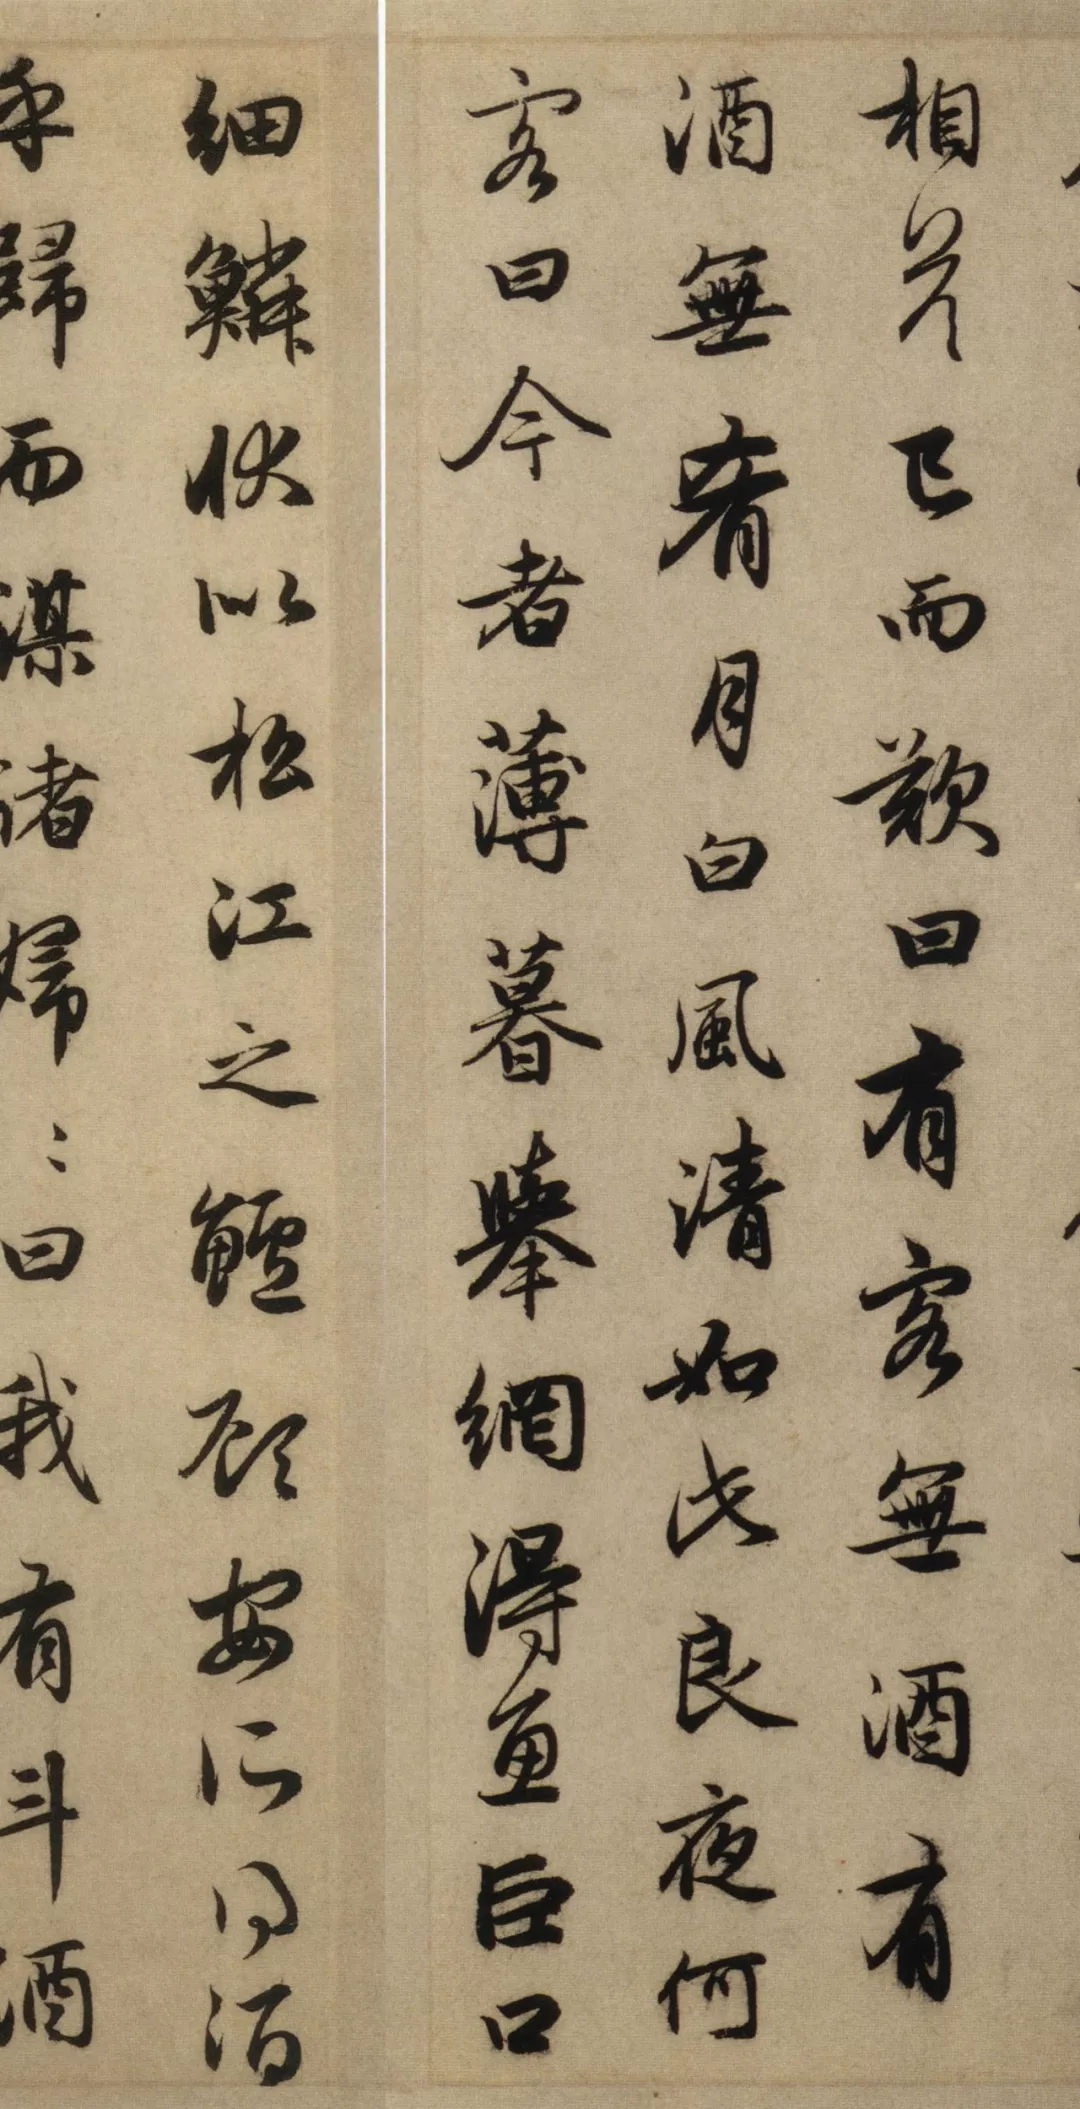 相答已而歎曰有客無酒有
酒無肴月白風清如此良夜何
客曰今者薄暮舉網得魚巨口
細鱗狀似松江之鱸顧安所得酒
乎歸而謀諸婦〻曰我有斗酒